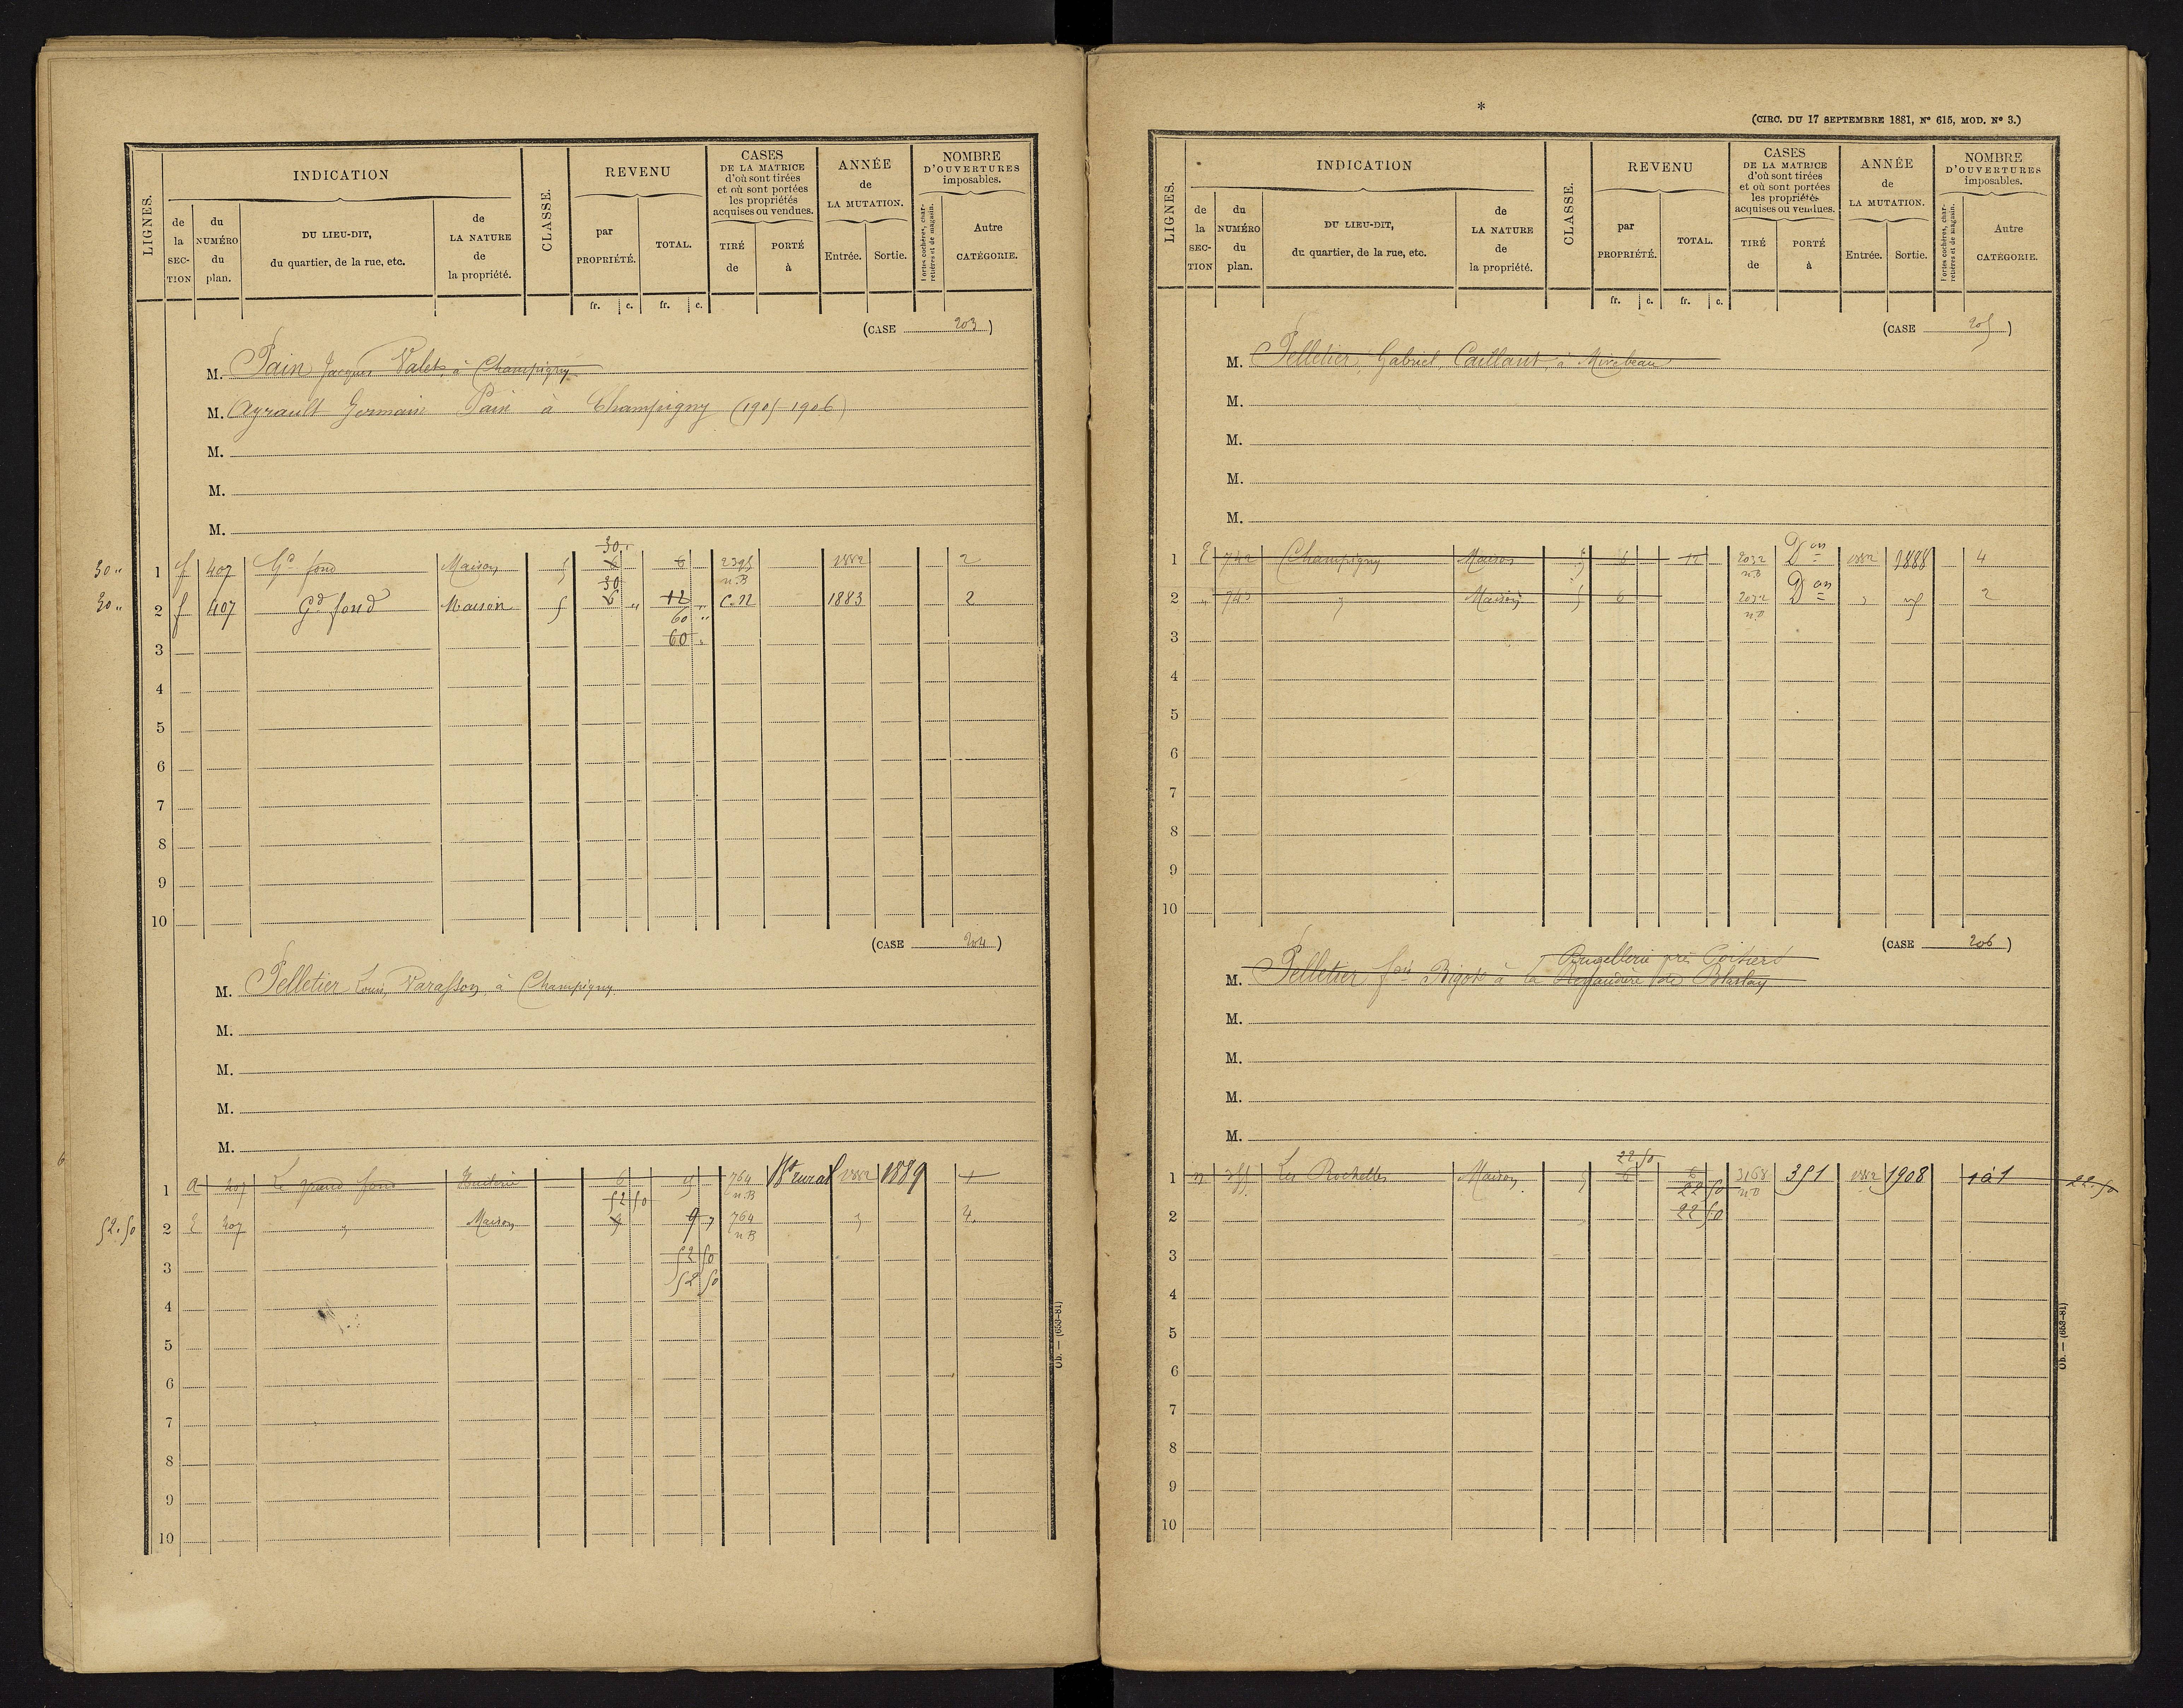 LIGNES.
INDICATION
de la SECTION
du NUMÉRO du plan.
DU LIEU-DIT,
du quartier, de la rue, etc.
de LA NATURE de la propriété.
CLASSE.
REVENU
par PROPRIÉTÉ.
TOTAL.
CASES
DE LA MATRICE
d'où sont tirées
et où sont portées
les propriétés
acquises ou vendues.
TIRÉ de
PORTÉ à
ANNÉE
de
LA MUTATION.
Entrée.
Sortie.
NOMBRE
D'OUVERTURES
imposables.
Portes cochères, charretières et de magasin.
Autre CATÉGORIE.
fr. c. fr. c.
(CASE 203)
M. Pain Jacques Valet, à Champigny
M. Ayrault Germain Pain à Champigny (1905 1906)
M.
M.
M.
30 "
30 "
1 f 407 Gd fond Maison 5 6 6 2395 n.B 1882 2
30 "
30
2 f 407 Gd fond Maison 5 6 " 12 " C.N 1883 2
60 "
3 60 "
4
5
6
7
8
9
10
(CASE 204)
M. Pelletier Louis, à Champigny
M.
M.
M.
M.
1 a 207 Le grand fond Huilerie 6 9 764 n.B Bt rural 1882 1889 1
52 50
52.50 2 E 207 " Maison 9 9 764 n.B " 4
52 50
3 52 50
4
5
6
7
8
9
10
Ob. — (653-81)
*
(CIRC. DU 17 SEPTEMBRE 1881, N° 615, MOD. N° 3.)
LIGNES.
INDICATION
de la SECTION
du NUMÉRO du plan.
DU LIEU-DIT,
du quartier, de la rue, etc.
de LA NATURE de la propriété.
CLASSE.
REVENU
par PROPRIÉTÉ.
TOTAL.
CASES
DE LA MATRICE
d'où sont tirées
et où sont portées
les propriétés
acquises ou vendues.
TIRÉ de
PORTÉ à
ANNÉE
de
LA MUTATION.
Entrée.
Sortie.
NOMBRE
D'OUVERTURES
imposables.
Portes cochères, charretières et de magasin.
Autre CATÉGORIE.
fr. c. fr. c.
(CASE 205)
M. Pelletier, Gabriel, Caillaut, à Mirebeau
M.
M.
M.
M.
1 E 742 Champigny Maison 5 6 12 2032 n.B Don 1882 1888 4
2 " 743 " Maison 5 6 2032 n.B Don " 2
3
4
5
6
7
8
9
10
(CASE 206)
près Poitiers
M. Pelletier fois Bigot à la de Blaslay
M.
M.
M.
M.
22 50
1 n Les Rochelles Maison 5 6 6 3168 n.B 351 1882 1908 1 à 1 22.50
22 50
2 22 50
3
4
5
6
7
8
9
10
Ob. — (653-81)